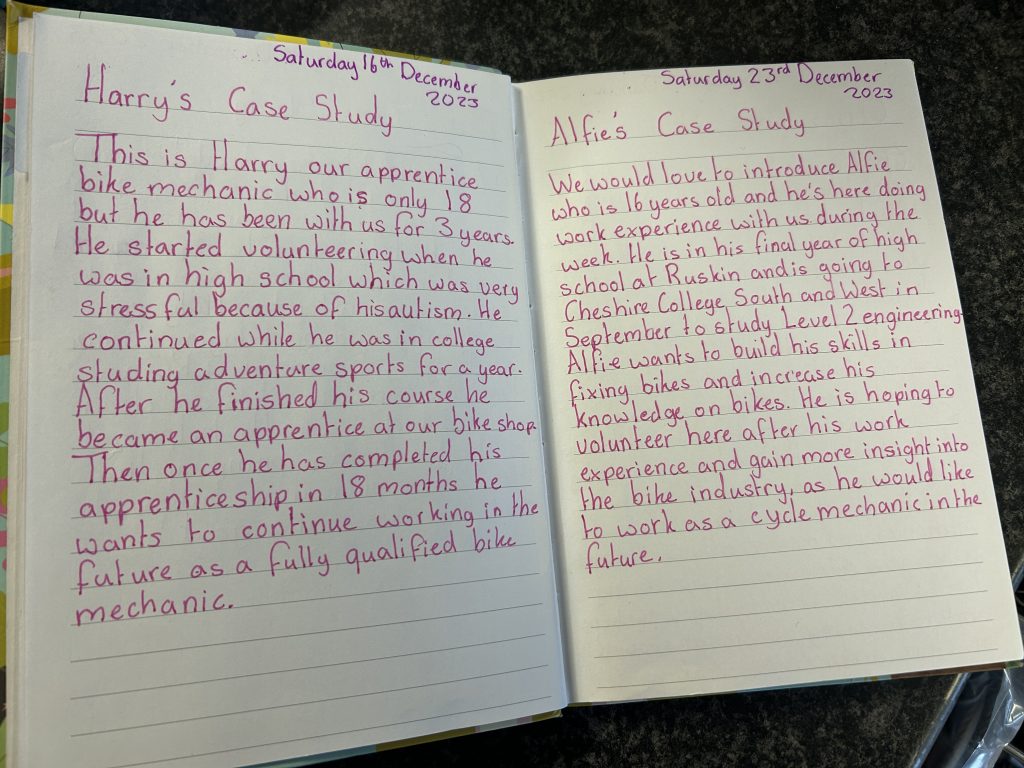 Saturday 16th December
2023
Harry's Case Study
This is Harry our apprentice
bike mechanic who is only 18
but he has been with us for 3 years.
He started volunteering when he
was in high school which was very
stressful because of his autism. He
continued while he was in college
studing adventure sports for a year.
After he finished his course he
became an apprentice at our bike shop
Then once he has completed his
apprenticeship in 18 months he
wants to continue working in the
future as a fully qualified bike
mechanic.
Saturday 23rd December
2023
Alfie's Case Study
We would love to introduce Alfie
who is 16 years old and he's here doing
work experience with us during the
week. He is in his final year of high
school at Ruskin and is going to
Cheshire College South and West in
September to study Level 2 engineering.
Alfie wants to build his skills in
fixing bikes and increase his
knowledge on bikes. He is hoping to
volunteer here after his work
experience and gain more insight into
the bike industry, as he would like
to work as a cycle mechanic in the
future.